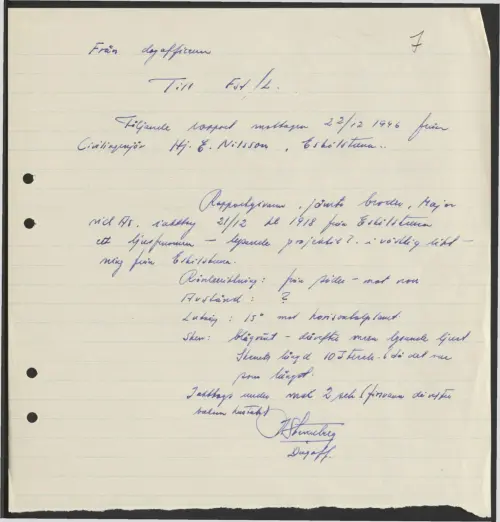 7
Från dagofficeren
Till Fst/L.
Följande rapport mottagen 22/12 1946 från
Civilingenjör Hj. E. Nilsson, Eskilstuna.
Rapportgivaren, jämte broder, Major
vid iakttog 21/12 kl 1918 från Eskilstuna
ett ljusfenomen – lysande projektil? i västlig
från Eskilstuna.
från söder – mot norr
Avstånd : ?
Lutning : 15° mot horisontalplanet.
Sken: blågrönt – därefter lysande ljust
längd då det var
som längst.
Iakttogs under 2 sek försvann därefter
bakom
Dagoff.